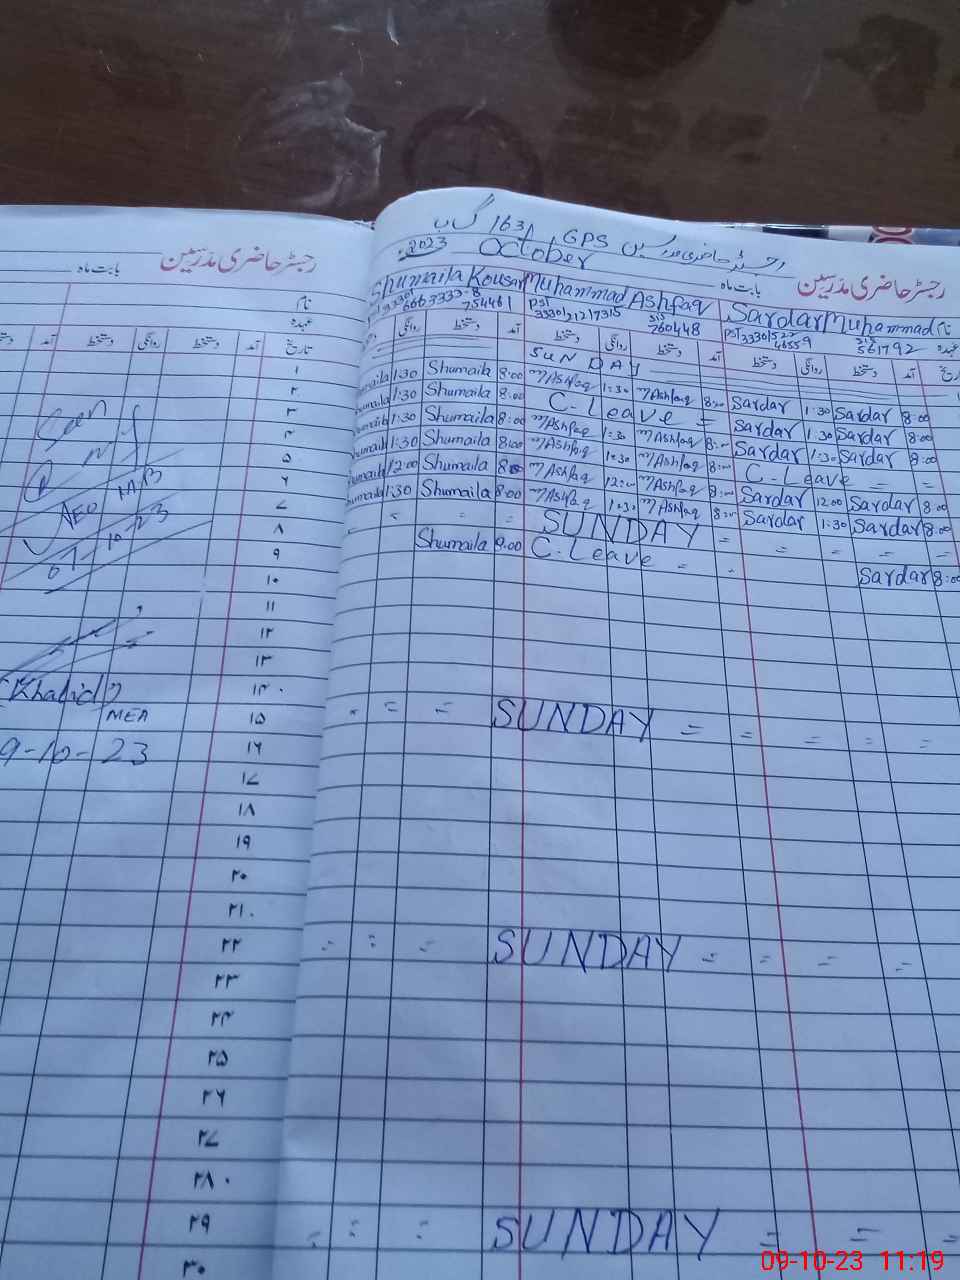 رجسٹر حاضری مدرسین GPS 163 گ ب
October 2023
رجسٹر حاضری مدرسین
بابت ماہ
نام
Sardar Muhammad
Muhammad Ashfaq
Shumaila Kousar
عہدہ
PST
PST
تاریخ آمد دستخط روانگی دستخط
SUNDAY
Sardar 8:00 Sardar 1:30 M Ashfaq 8:00 M Ashfaq 1:30 Shumaila 8:00 Shumaila 1:30
Sardar 8:00 Sardar 1:30 C-Leave = Shumaila 8:00 Shumaila 1:30
Sardar 8:00 Sardar 1:30 M Ashfaq 8:00 M Ashfaq 1:30 Shumaila 8:00 Shumaila 1:30
= = C-Leave M Ashfaq 8:00 M Ashfaq 1:30 Shumaila 8:00 Shumaila 1:30
Sardar 8:00 Sardar 12:00 M Ashfaq 8:00 M Ashfaq 12:00 Shumaila 8:00 Shumaila 12:00
Sardar 8:00 Sardar 1:30 M Ashfaq 8:00 M Ashfaq 1:30 Shumaila 8:00 Shumaila 1:30
= = = SUNDAY = = = =
Sardar 8:00 C-Leave = = Shumaila 8:00
= = = SUNDAY = = = = =
= = = SUNDAY = = = =
= = = SUNDAY = = =
رجسٹر حاضری مدرسین
بابت ماہ
نام
عہدہ
تاریخ آمد دستخط روانگی دستخط آمد
۱
۲
۳
۴
۵
۶
۷
۸
۹
۱۰
۱۱
۱۲
۱۳
۱۴
۱۵
۱۶
۱۷
۱۸
۱۹
۲۰
۲۱
۲۲
۲۳
۲۴
۲۵
۲۶
۲۷
۲۸
۲۹
۳۰
Seen
AEO
(Khalid)
MEA
9-10-23
09-10-23 11:19